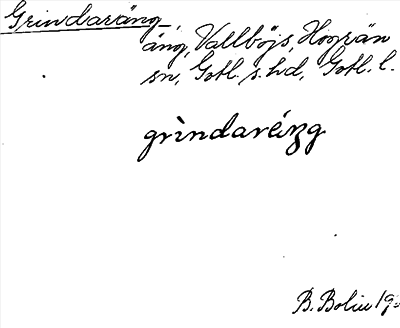 Grindaräng
äng, Vallböjs, Hogrän
sn, Gotl. s. hd, Gotl. l.
grìndaréŋg
B. Bolin 19